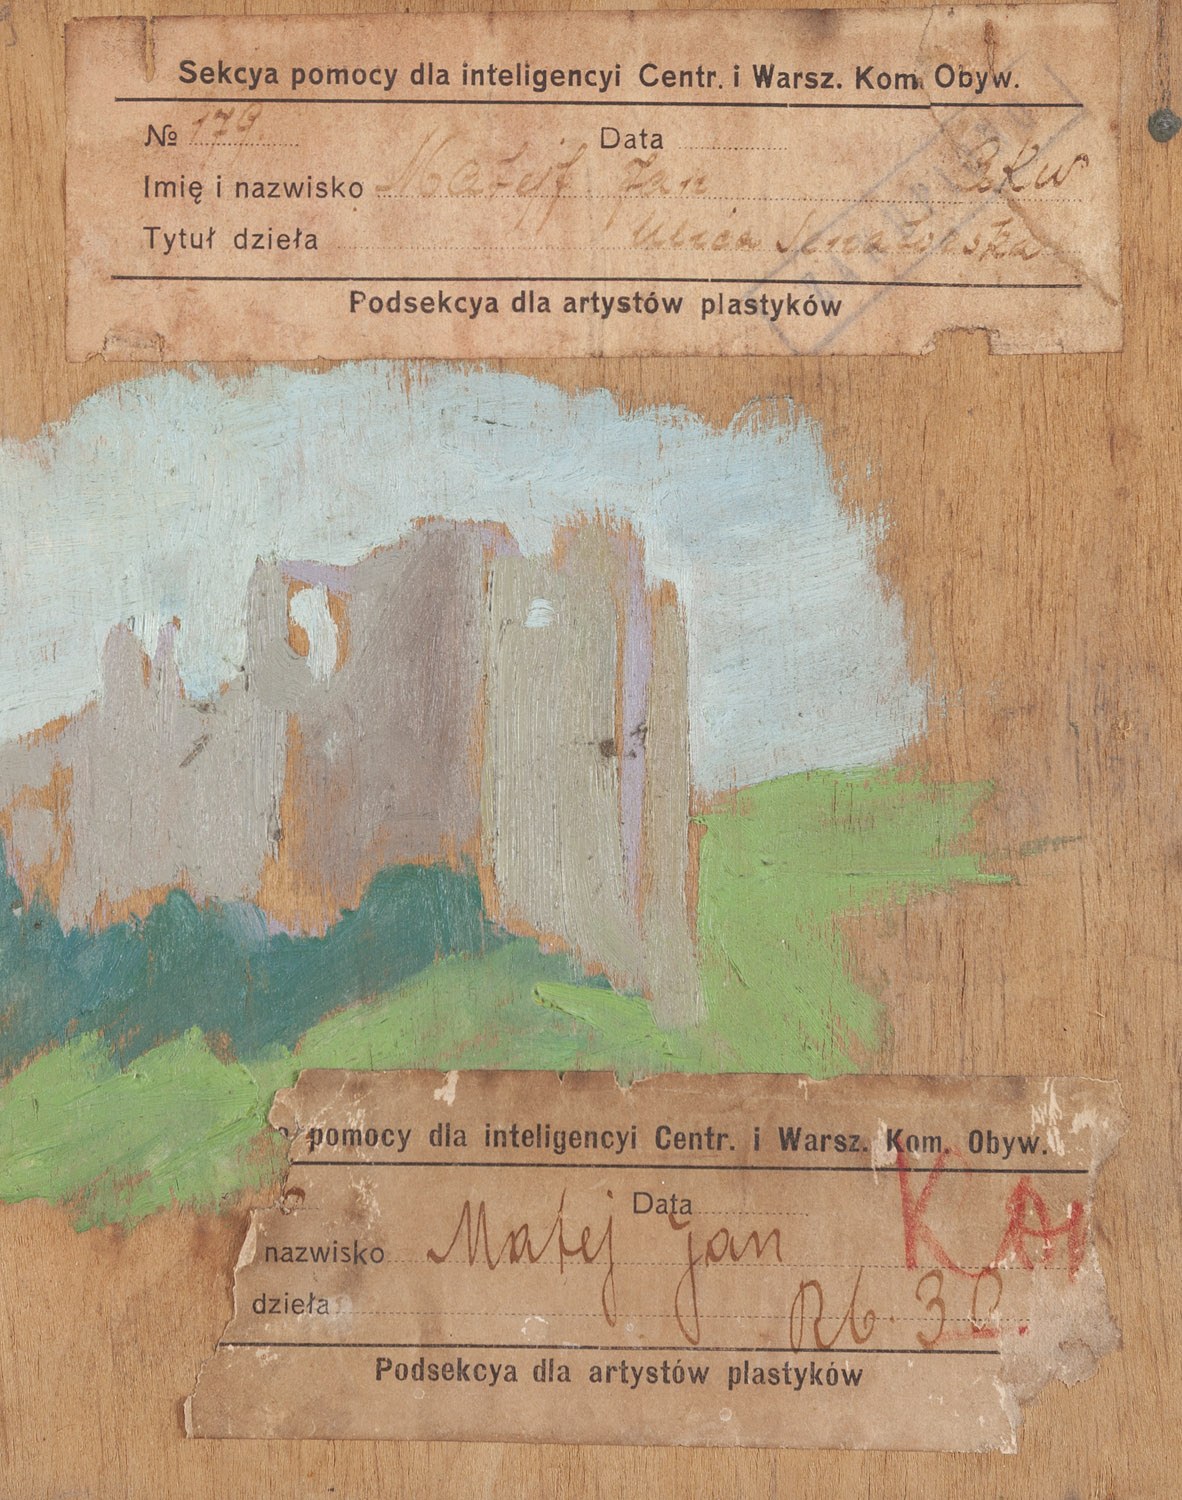 Sekcya pomocy dla inteligencyi Centr. i Warsz. Kom. Obyw.
№ 179. Data
Imię i nazwisko Matejj Jan
Tytuł dzieła ulica
Podsekcya dla artystów plastyków
pomocy dla inteligencyi Centr. i Warsz. Kom. Obyw.
Data
nazwisko Matej Jan
dzieła Rb. 3
Podsekcya dla artystów plastyków